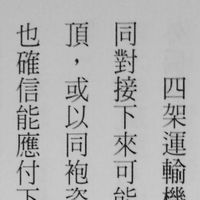 四架運輸機
同對接下來可能
頂，或以同袍姿
也確信能應付下